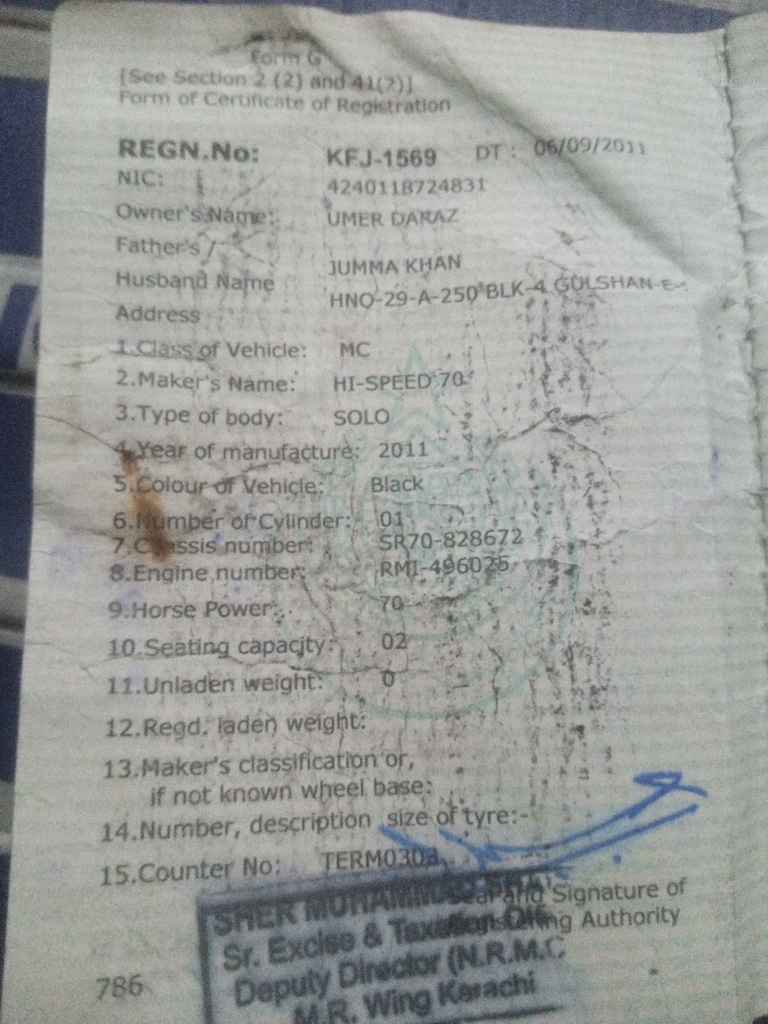 Form G
[See Section 2 (2) and 41(2)]
Form of Certificate of Registration
REGN.No: KFJ-1569 DT : 06/09/2011
NIC: 4240118724831
Owner's Name: UMER DARAZ
Father's /
Husband Name JUMMA KHAN
Address HNO-29-A-250 BLK-4 GULSHAN-E-
1.Class of Vehicle: MC
2.Maker's Name: HI-SPEED 70
3.Type of body: SOLO
4.Year of manufacture: 2011
5.Colour of Vehicle: Black
6.Number of Cylinder: 01
7.Chassis number: SR70-828672
8.Engine number: RMI-496025
9.Horse Power: 70
10.Seating capacity: 02
11.Unladen weight: 0
12.Regd. laden weight:
13.Maker's classification or,
if not known wheel base:
14.Number, description size of tyre:-
15.Counter No: TERM030a
Seal and Signature of
Registering Authority
SHER MUHAMMAD
Sr. Excise & Taxation Off
Deputy Director (N.R.M.C
M.R. Wing Karachi
786